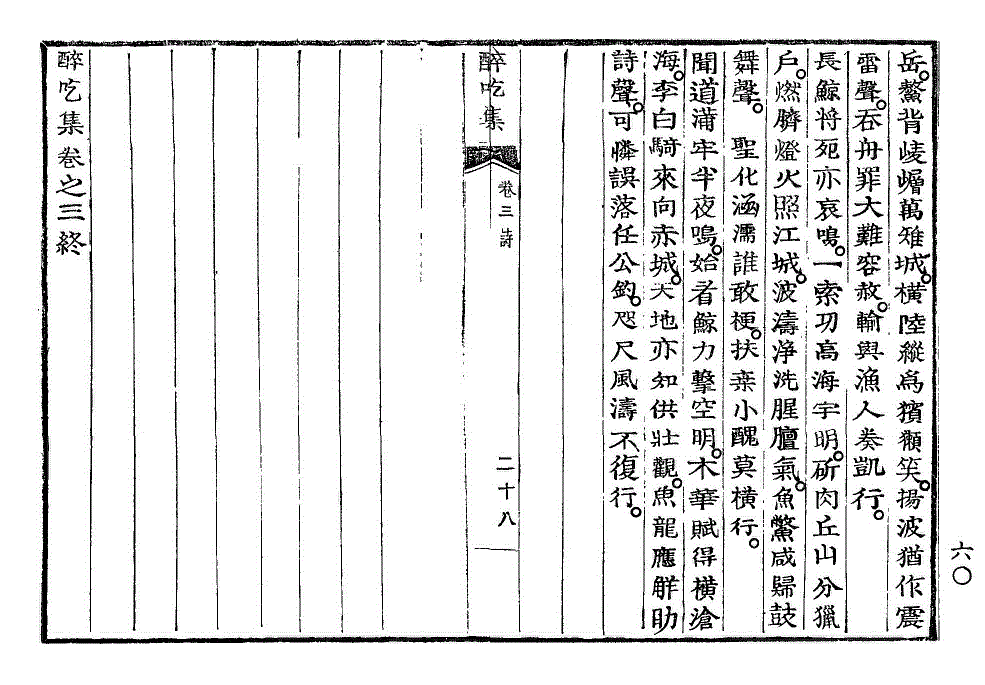 岳。鰲背崚嶒萬雉城。橫陸縱爲獱獺笑。揚波猶作震
雷聲。吞舟罪大難容赦。輸與漁人奏凱行。
長鯨將死亦哀鳴。一索功高海宇明。斫肉丘山分獵
戶。燃臍燈火照江城。波濤净洗腥膻氣。魚鱉咸歸鼓
舞聲。 聖化涵濡誰敢梗。扶桒小醜莫橫行。
聞道蒲牢半夜鳴。始看鯨力擊空明。木華賦得橫滄
海。李白騎來向赤城。天地亦知供壯觀。魚龍應觧助
詩聲。可憐誤落任公釣。咫尺風濤不復行。
醉吃集
卷三 詩
二十八
醉吃集卷之三終
六〇